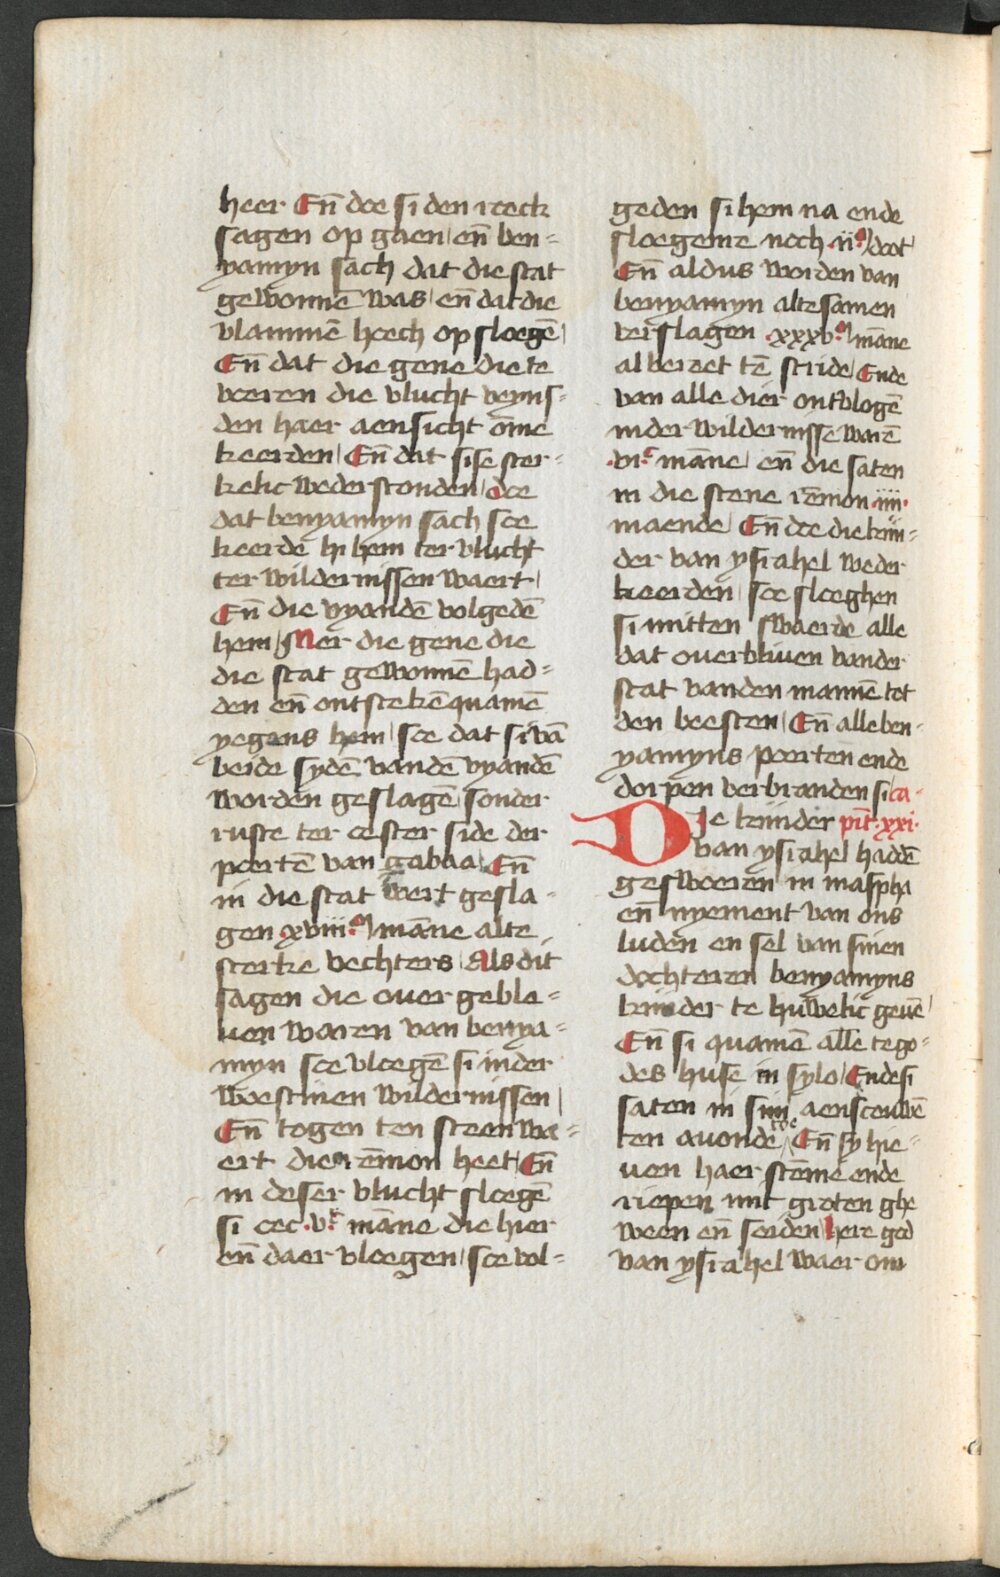 heer Eñ doe si den roeck
sagen op gaen eñ ben=
yamyn sach dat die stat
gewonnē was eñ dat die
vlammē hoech op sloegē
Eñ dat die gene die te
voeren die vlucht veyns=
den haer aensicht ōme
keerden Eñ dat si se ster=
kelic weder stonden doe
dat benyamyn sach soe
keerde hi hem ter vlucht
ter wildernissen waert
Eñ die vyandē volgedē
hem Mer die gene die
die stat gewonnē had=
den eñ ontstekē quamē
yegens hem soe dat si vā
beide sydē vandē vyandē
worden geslagē sonder
ruste ter oester side der
poertē van gabaa Eñ
in die stat wert gesla-
gen .xviii.ᵐ māne alte
sterke vechters Als dit
sagen die ouer geble=
uen waren van benya=
myn soe vloegē si inder
woestinen wildernissen
Eñ togen ten steen wa=
ert die rēmon heet Eñ
in deser vlucht sloegē
si oec .v.ᶜ māne die hier
eñ daer vloegen soe vol=
geden si hem na ende
sloegenre noch .ii.ᵐ doot
Eñ aldus worden van
benyamyn altesamen
verslagen .xxxv.ᵐ māne
al bereet tē stride Ende
van alle dier ontvlogē
inder wildernisse warē
.vi.ᶜ māne eñ die saten
in die stene rēmon .iiii.
maende Eñ doe die kin=
der van ysrahel weder
keerden soe sloeghen
si mitten swaerde alle
dat ouerbliuen vander
stat vanden mannē tot
den beesten Eñ alle ben-
yamyns poerten ende
dorpen verbranden si ca-
Die kiinder pit̄.xxi.
van ysrahel haddē
geswoeren in maspha
eñ nyement van ons
luden en sel van sinen
dochteren benyamyns
kinder te huwelic geuē
Eñ si quamē alle te go=
des huse in sylo Ende si
saten in siin aenscouwē
toe
ten auonde Eñ sy hie=
uen haer stēme ende
riepen mit groten ghe
ween eñ seiden here god
van ysrahel waer om